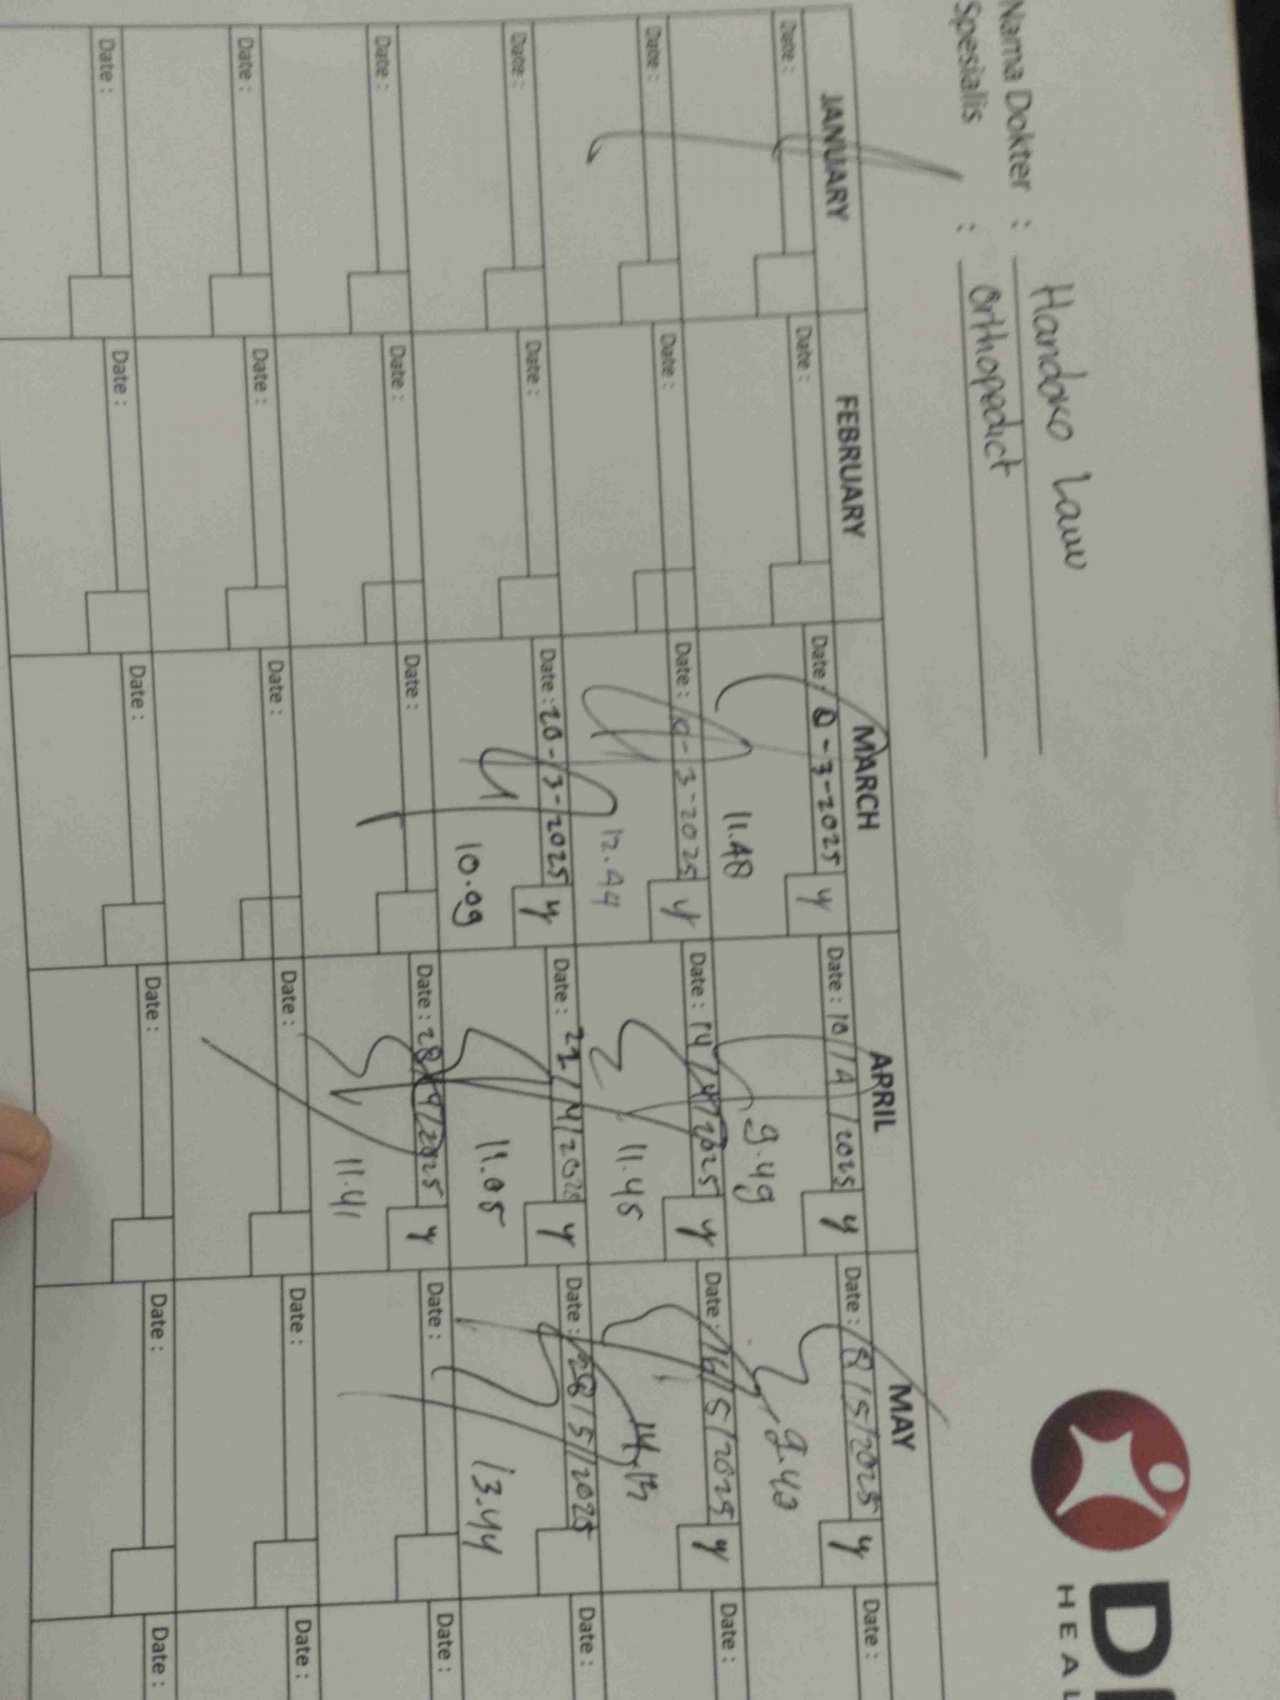 Nama Dokter : Handoko Lauw
Spesialis : Orthopedict
HEAL
JANUARY FEBRUARY MARCH APRIL MAY
Date : Date : Date : -3-2025 y Date : 10/4/2025 y Date : 8/5/2025 y Date :
11.48 9.49 9.42
Date : Date : Date : 10-3-2025 y Date : 14/4/2025 y Date : 16/5/2025 y Date :
12.44 11.45 14.13
Date : Date : Date : 20-3-2025 y Date : 22/4/2025 y Date : 28/5/2025 Date :
10.09 11.05 13.44
Date : Date : Date : Date : 28/4/2025 y Date : Date :
11.41
Date : Date : Date : Date : Date : Date :
Date : Date : Date : Date : Date : Date :